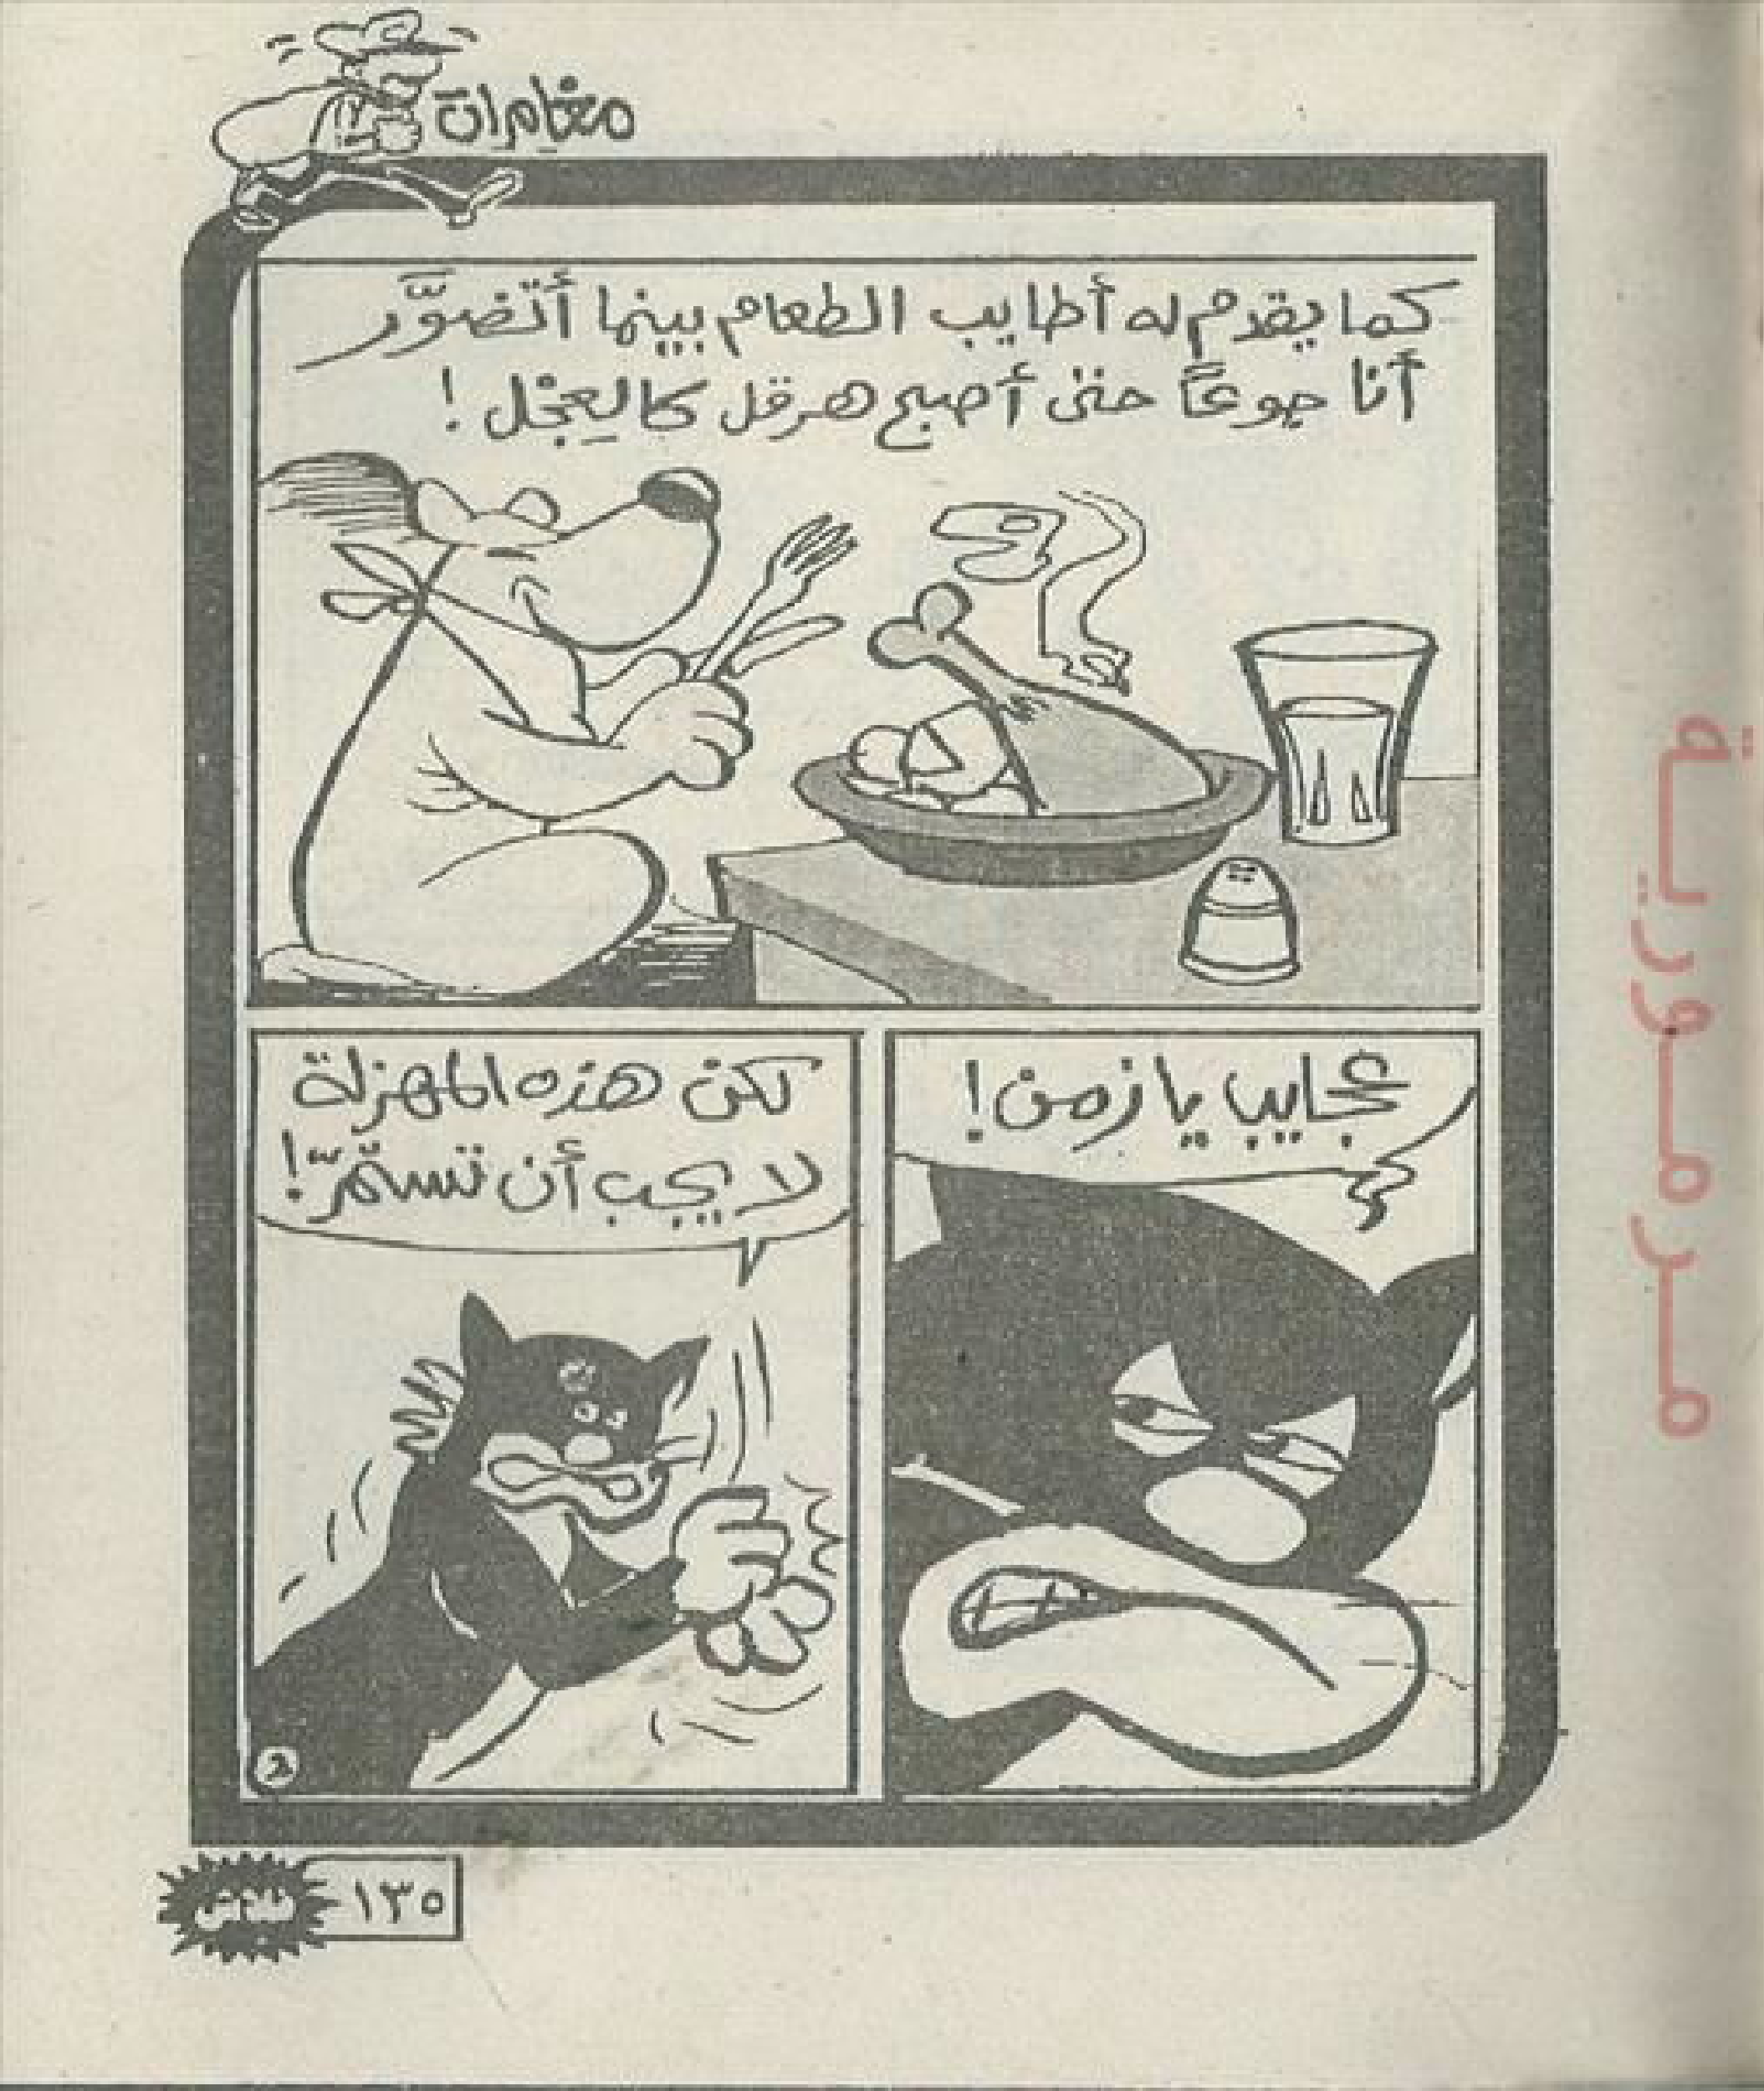 مغامرات
كما يقدم له أطايب الطعام بينما أتضوَّر
أنا جوعاً حتى أصبح هرقل كالعِجْل !
عجايب يا زمن !
لكن هذه المهزلة
لا يجب أن تستمرّ !
٢
١٣٥
فلاش
مرمورية